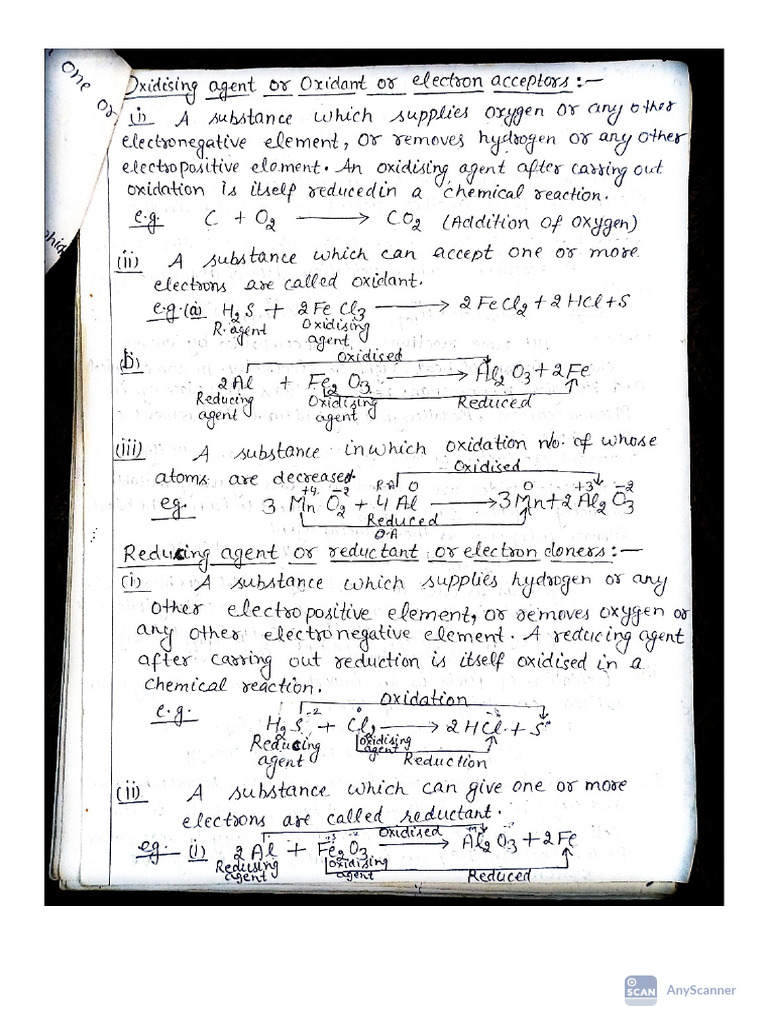 one
or
Oxidising agent or Oxidant or electron acceptors:—
(i) A substance which supplies oxygen or any other
electronegative element, or removes hydrogen or any other
electropositive element. An oxidising agent after carring out
oxidation is itself reduced in a chemical reaction.
e.g. C + O₂ ⟶ CO₂ (Addition of oxygen)
(ii) A substance which can accept one or more
electrons are called oxidant.
e.g. (a) H₂S + 2FeCl₃ ⟶ 2FeCl₂ + 2HCl + S
R. agent Oxidising
agent
(b) Oxidised
2Al + Fe₂O₃ ⟶ Al₂O₃ + 2Fe
Reducing Oxidising Reduced
agent agent
(iii) A substance in which oxidation no. of whose
atoms are decreased.
Oxidised
R.A 0 +4 -2 0 +3 -2
eg. 3MnO₂ + 4Al ⟶ 3Mn + 2Al₂O₃
Reduced
O.A
Reducing agent or reductant or electron doners:—
(i) A substance which supplies hydrogen or any
other electropositive element, or removes oxygen or
any other electronegative element. A reducing agent
after carring out reduction is itself oxidised in a
chemical reaction.
Oxidation
e.g. H₂S⁻² + Cl₂⁰ ⟶ 2HCl + S⁰
Reducing oxidising
agent agent Reduction
(ii) A substance which can give one or more
electrons are called reductant.
Oxidised
eg. (i) 2Al + Fe₂O₃ ⟶ Al₂O₃ + 2Fe
Reducing oxidising
agent agent Reduced
SCAN AnyScanner